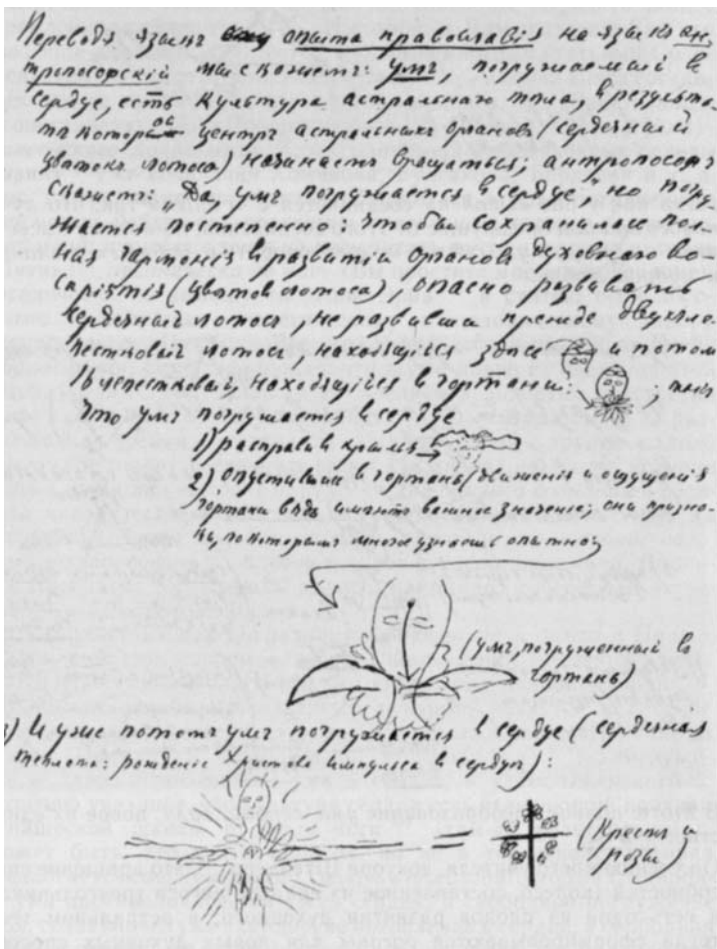 Переводя языкъ опыта православія на языкъ ан-
тропософскій мы скажемъ: умъ, погружаемый въ
сердце, есть культура астральнаго тѣла, въ результа-
тѣ которой центръ астральныхъ органовъ (сердечный
цвѣтокъ лотоса) начинаетъ вращаться; антропософъ
скажетъ: "Да, умъ погружается въ сердце" но погру-
жается постепенно: чтобы сохранилась пол-
ная гармонія въ развитіи органовъ духовнаго во-
спріятія (цвѣтовъ лотоса), опасно развивать
сердечный лотосъ, не развивши прежде двухле-
пестковый лотосъ, находящійся здѣсь и потомъ
16 лепестковый, находящійся въ гортани: такъ
что умъ погружается въ сердце
1) расправивъ крылья
2) опустившись въ гортань (движенія и ощущенія
гортани вѣдь имѣютъ военное значеніе; они призна-
ки, по которымъ многое узнаешь опытно)
(умъ, погруженный въ
гортань)
3) И уже потомъ умъ погружается въ сердце (сердечная
теплота: рожденіе Христова импульса въ сердцѣ):
= (Крестъ и
розы)